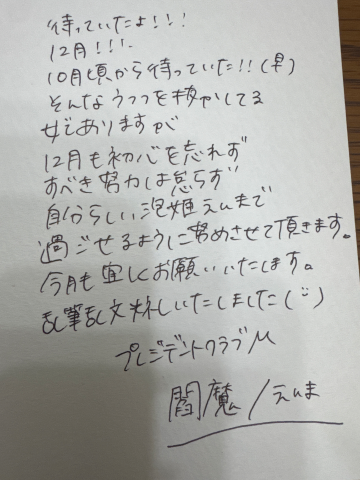 待っていたよ!!!
12月!!!
10月頃から待っていた!!(早)
そんなうつつを抜かしてる
女でありますが
12月も初心を忘れず
すべき努力は怠らず
自分らしい泡姫えんまで
過ごせるように努めさせて頂きます。
今月も宜しくお願いいたします。
乱筆乱文失礼いたしました(¨)
プレジデントクラブM
閻魔/えんま